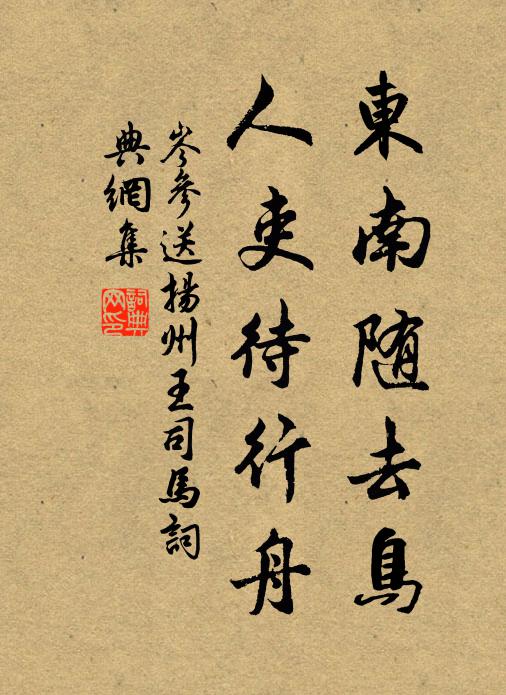 東南随去鳥
人吏待行舟
岑參送揚州王司馬詞
典網集
詞典
网印